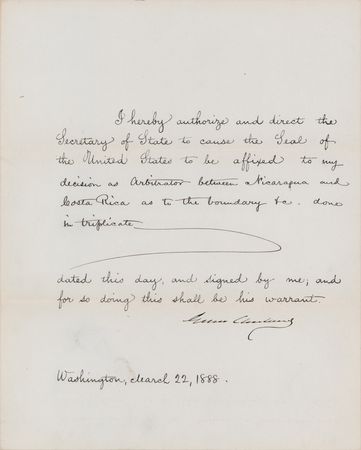 I hereby authorize and direct the
Secretary of State to cause the Seal of
the United States to be affixed to my
decision as Arbitrator between Nicaragua and
Costa Rica as to the boundary &c. done
in triplicate
dated this day, and signed by me; and
for so doing this shall be his warrant.
Grover Cleveland
Washington, March 22, 1888.